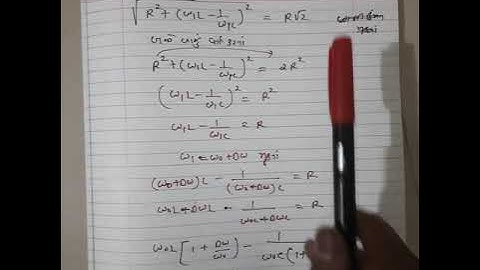 √R² + (ω₁L - 1/ω₁c)² = R√2
R² + (ω₁L - 1/ω₁c)² = 2R²
(ω₁L - 1/ω₁c)² = R²
ω₁L - 1/ω₁c = R
ω₁ = ω₀ + Δω
(ω₀ + Δω)L - 1/(ω₀ + Δω)c = R
ω₀L + ΔωL - 1/ω₀c + Δωc = R
ω₀L [1 + Δω/ω₀] - 1/ω₀c (1+